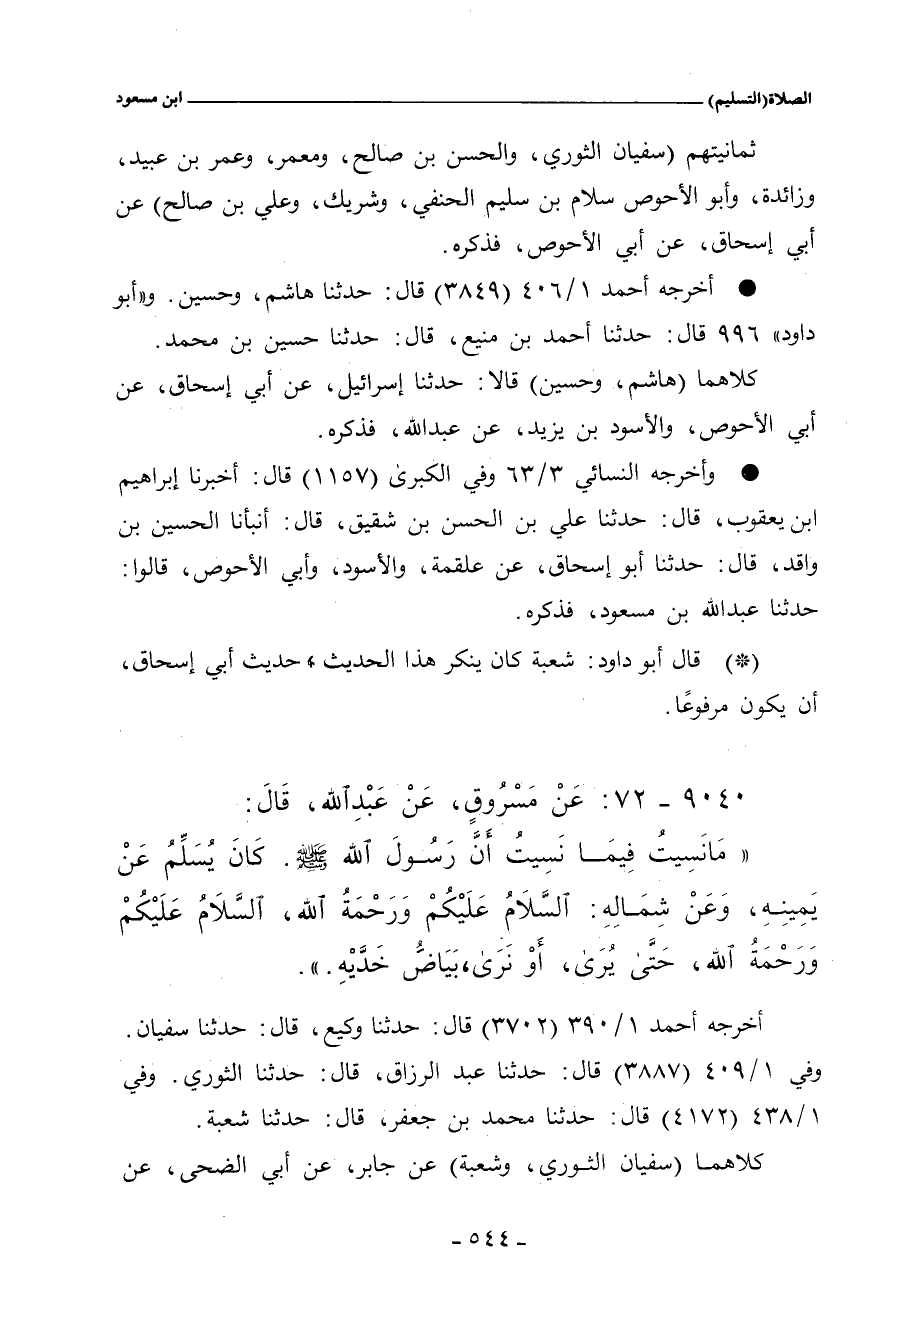 الصلاة(التسليم) ــــــــــــــــــــــــــــــــــــــــ ابن مسعود
ثمانيتهم (سفيان الثوري، والحسن بن صالح، ومعمر، وعمر بن عبيد،
وزائدة، وأبو الأحوص سلام بن سليم الحنفي، وشريك، وعلي بن صالح) عن
أبي إسحاق، عن أبي الأحوص، فذكره.
● أخرجه أحمد ٤٠٦/١ (٣٨٤٩) قال: حدثنا هاشم، وحسين. و«أبو
داود» ٩٩٦ قال: حدثنا أحمد بن منيع، قال: حدثنا حسين بن محمد.
كلاهما (هاشم، وحسين) قالا: حدثنا إسرائيل، عن أبي إسحاق، عن
أبي الأحوص، والأسود بن يزيد، عن عبدالله، فذكره.
● وأخرجه النسائي ٦٣/٣ وفي الكبرىٰ (١١٥٧) قال: أخبرنا إبراهيم
ابن يعقوب، قال: حدثنا علي بن الحسن بن شقيق، قال: أنبأنا الحسين بن
واقد، قال: حدثنا أبو إسحاق، عن علقمة، والأسود، وأبي الأحوص، قالوا:
حدثنا عبدالله بن مسعود، فذكره.
(*) قال أبو داود: شعبة كان ينكر هذا الحديث، حديث أبي إسحاق،
أن يكون مرفوعًا.
٩٠٤٠ ـ ٧٢: عَنْ مَسْرُوقٍ، عَنْ عَبْدِٱلله، قَالَ:
« مَانَسِيتُ فِيمَـا نَسِيتُ أَنَّ رَسُـولَ ٱلله ﷺ. كَانَ يُسَلِّمُ عَنْ
يَمِينِـهِ، وَعَنْ شِمَـالِهِ: ٱلسَّلَامُ عَلَيْكُمْ وَرَحْمَةُ ٱلله، ٱلسَّلَامُ عَلَيْكُمْ
وَرَحْمَةُ ٱلله، حَتَّىٰ يُرَىٰ، أَوْ نَرَىٰ،بَيَاضُ خَدَّيْهِ.».
أخرجه أحمد ٣٩٠/١ (٣٧٠٢) قال: حدثنا وكيع، قال: حدثنا سفيان.
وفي ٤٠٩/١ (٣٨٨٧) قال: حدثنا عبد الرزاق، قال: حدثنا الثوري. وفي
٤٣٨/١ (٤١٧٢) قال: حدثنا محمد بن جعفر، قال: حدثنا شعبة.
كلاهمـا (سفيان الثـوري، وشعبة) عن جابر، عن أبي الضحى، عن
ـ ٥٤٤ ـ